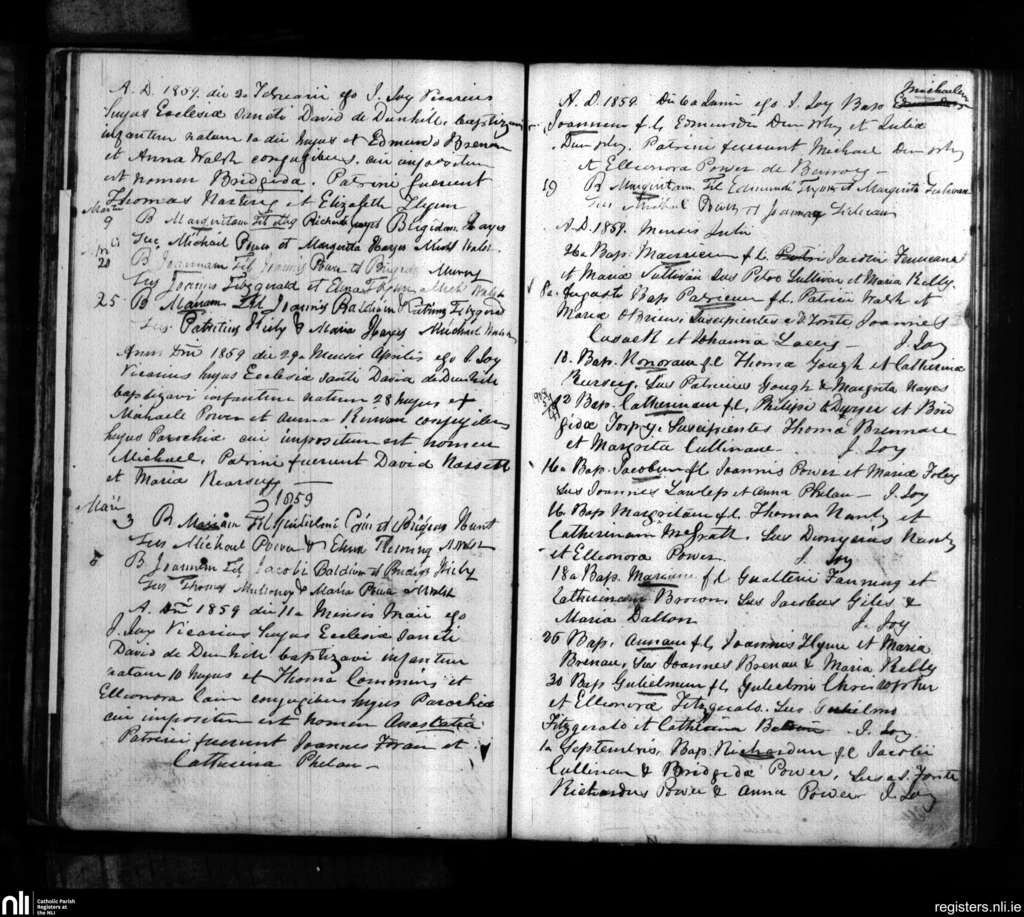 A. D. 1859. die 2a Februarii ego J. Joy Vicarius
hujus Ecclesiæ Sancti David de Dunhill, baptizavi
infantem natum 1a die hujus et Edmundo Brenan
et Anna Walsh conjugibus, cui impositum
est nomen Bridgida. Patrini fuerunt
Thomas et Elizabeth Flynn
Martii
9 B Margritam Fil Richardi Hayes Brigidam Hayes
Sus Michael Power et Margrita Hayes Mich Walsh
20 B Joannam Fil Joannis Power et Brigida Murray
Sus Joannes Fitzgerald et Flynn Mich Walsh
25 B Mariam Fil Joannis Baldwin Fitzgerald
Sus Patritius & Maria Hayes Michael Walsh
Anno Dni 1859 die 29a Mensis Aprilis ego J. Joy
Vicarius hujus Ecclesiæ Sancti David de Dunhill
baptizavi infantem natum 28 hujus ex
Michaele Power et Anna Kirwan conjugibus
hujus Parochiæ cui impositum est nomen
Michael. Patrini fuerunt David Nassett
et Maria Kearsey —
1859
Maii
3 B Mariam Fil et Brigida Hunt
Sus Michael Power & Fleming M Walsh
8 B Joannem Fil Jacobi Baldwin et
Sus Thomas Mulloney & Maria Power M Walsh
A. Dni 1859 die 11a Mensis Maii ego
J. Joy Vicarius hujus Ecclesiæ Sancti
David de Dunhill baptizavi infantem
natam 10 hujus et Thoma Commins et
Elleonora Cain conjugibus hujus Parochiæ
cui impositum est nomen Anastatia
Patrini fuerunt Joannes Foran et
Catherina Phelan —
Michaelem
A. D. 1859 Die 6a Junii ego J. Joy Bap
Joannem f.l. Edmundi Dunphy et Julia
Dunphy. Patrini fuerunt Michael Dunphy
et Elleonora Power de
19 B Margritam Fil Edmundi et Margrita Sulivan
Sus Michael Power et Joanna
A. D. 1859. Mensis Julii
26a Bap. f.l. Jacobi
et Maria Sullivan Sus Petro Sullivan et Maria Kelly.
8a Augusti Bap Patricium f.l. Patricii Walsh et
Maria OBrien, Suscipientes a S Fonte Joannes
Cusack et Johanna Lacey — J. Joy
10. Bap. Honoram f.l. Thoma Gough et Catherina
Kearsey. Sus Patricius Gough & Margrita Hayes
12 Bap. Catherinam f.l. Philippi Dwyer et Brid
gidæ Torpy. Suscipientes Thoma Brennan
et Margrita Cullinane. J. Joy
14a Bap. Jacobum f.l. Joannis Power et Mariæ Foley
Sus Joannes Lawless et Anna Phelan — J. Joy
16 Bap Margritam f.l. Thomas et
Catherinam McGrath. Sus Dionysius
et Elleonora Power. J. Joy
18a Bap. Mariam f.l. Gualteri Fanning et
Catherinam Brown. Sus Jacobus Giles &
Maria Dalton J. Joy
26 Bap. Annam f.l. Joannes Flynn et Maria
Brenan, Sus Joannes Brenan & Maria Kelly
30 Bap Gulielmum f.l. Gulielmi Christopher
et Elleonora Fitzgerald. Sus. Gulielmo
Fitzgerald et Catherina J. Joy
1a Septembris, Bap. Richardum f.l. Jacobi
Cullinan & Bridgidæ Power, Sus a S. Fonte
Richardus Power & Anna Power J. Joy
nli Catholic Parish
Registers at
the NLI
registers.nli.ie